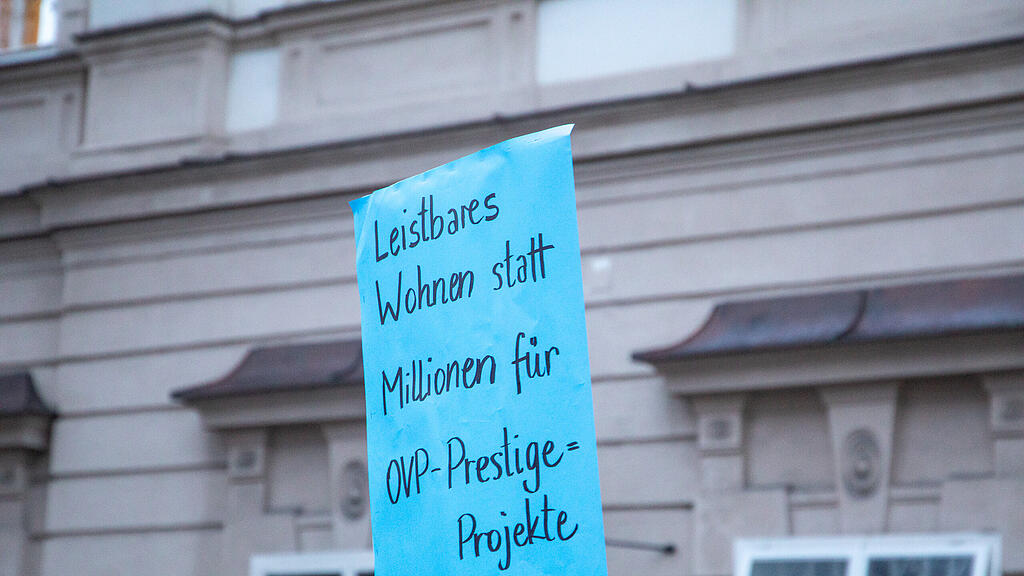 Leistbares
Wohnen statt
Millionen für
OVP-Prestige=
Projekte